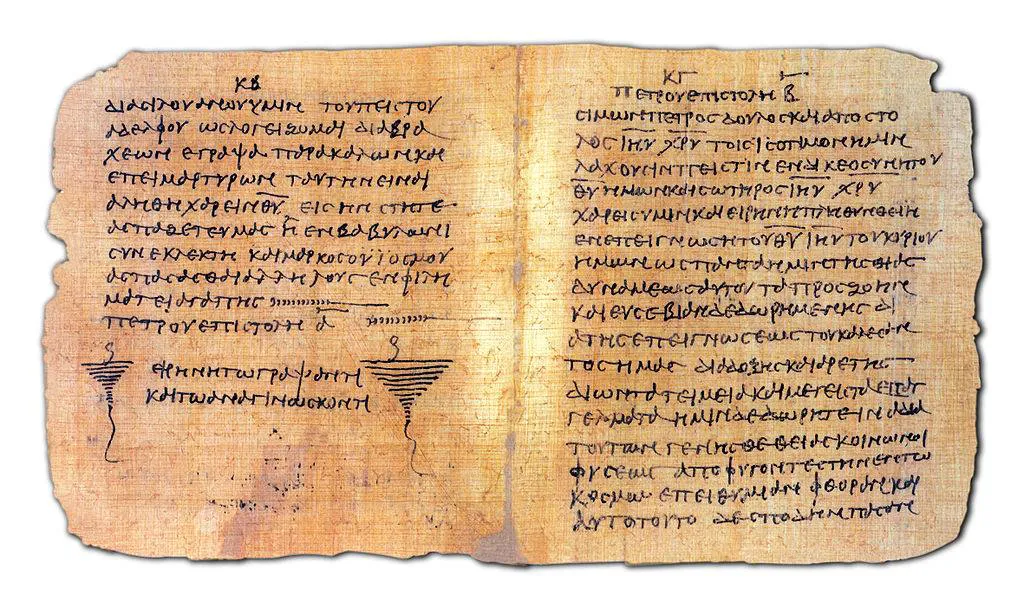 ΚΒ
ΔΙΑ ϹΙΛΟΥΑΝΟΥ ΥΜΙΝ ΤΟΥ ΠΕΙϹΤΟΥ
ΑΔΕΛΦΟΥ ΩϹ ΛΟΓΕΙΖΟΜΑΙ ΔΙΑ ΒΡΑ
ΧΕΩΝ ΕΓΡΑΨΑ ΠΑΡΑΚΑΛΩΝ ΚΑΙ
ΕΠΕΙΜΑΡΤΥΡΩΝ ΤΑΥΤΗΝ ΕΙΝΑΙ
ΑΛΗΘΗ ΧΑΡΕΙΝ Θ̅Υ̅ ΕΙϹ ΗΝ ϹΤΗΤΕ
ΑϹΠΑΖΕΤΕ ΥΜΑϹ Η ΕΝ ΒΑΒΥΛΩΝΙ
ϹΥΝΕΚΛΕΚΤΗ ΚΑΙ ΜΑΡΚΟϹ Ο ΥΙΟϹ ΜΟΥ
ΑϹΠΑϹΑϹΘΑΙ ΑΛΛΗΛΟΥϹ ΕΝ ΦΙΛΗ
ΜΑΤΕΙ ΑΓΑΠΗϹ
ΠΕΤΡΟΥ ΕΠΙϹΤΟΛΗ Α̅
ΕΙΡΗΝΗ ΤΩ ΓΡΑΨΑΝΤΙ
ΚΑΙ ΤΩ ΑΝΑΓΙΝΩϹΚΟΝΤΙ
ΚΓ
ΠΕΤΡΟΥ ΕΠΙϹΤΟΛΗ Β̅
ϹΙΜΩΝ ΠΕΤΡΟϹ ΔΟΥΛΟϹ ΚΑΙ ΑΠΟϹΤΟ
ΛΟϹ Ι̅Η̅Υ̅ Χ̅Ρ̅Υ̅ ΤΟΙϹ ΙϹΟΤΙΜΟΝ ΗΜΙΝ
ΛΑΧΟΥϹΙΝ ΠΕΙϹΤΙΝ ΕΝ ΔΙΚΕΟϹΥΝΗ ΤΟΥ
Θ̅Υ̅ ΗΜΩΝ ΚΑΙ ϹΩΤΗΡΟϹ Ι̅Η̅Υ̅ Χ̅Ρ̅Υ̅
ΧΑΡΕΙϹ ΥΜΙΝ ΚΑΙ ΕΙΡΗΝΗ ΠΛΗΘΥΝΘΕΙΗ
ΕΝ ΕΠΕΙΓΝΩϹΗ ΤΟΥ Θ̅Υ̅ Ι̅Η̅Υ̅ ΤΟΥ ΚΥΡΙΟΥ
ΗΜΩΝ ΩϹ ΠΑΝΤΑ ΗΜΙΝ ΤΗϹ ΘΕΙΑϹ
ΔΥΝΑΜΕΩϹ ΑΥΤΟΥ ΤΑ ΠΡΟϹ ΖΩΗΝ
ΚΑΙ ΕΥϹΕΒΙΑΝ ΔΕΔΩΡΗΜΕΝΗϹ ΔΙ
Α ΤΗϹ ΕΠΕΙΓΝΩϹΕΩϹ ΤΟΥ ΚΑΛΕϹΑΝ
ΤΟϹ ΗΜΑϹ ΔΙΑ ΔΟΞΗϹ ΚΑΙ ΑΡΕΤΗϹ
ΔΙ ΩΝ ΤΑ ΤΕΙΜΕΙΑ ΚΑΙ ΜΕΓΕΙϹΤΑ ΕΠΑΓ
ΓΕΛΜΑΤΑ ΗΜΙΝ ΔΕΔΩΡΗΤΕ ΙΝΑ ΔΙΑ
ΤΟΥΤΩΝ ΓΕΝΗϹΘΕ ΘΕΙΑϹ ΚΟΙΝΩΝΟΙ
ΦΥϹΕΩϹ ΑΠΟΦΥΓΟΝΤΕϹ ΤΗΝ ΕΝ ΤΩ
ΚΟϹΜΩ ΕΠΕΙΘΥΜΙΑΝ ΦΘΟΡΑΝ ΚΑΙ
ΑΥΤΟ ΤΟΥΤΟ ΔΕ ϹΠΟΔΗΝ ΠΑϹΑΝ